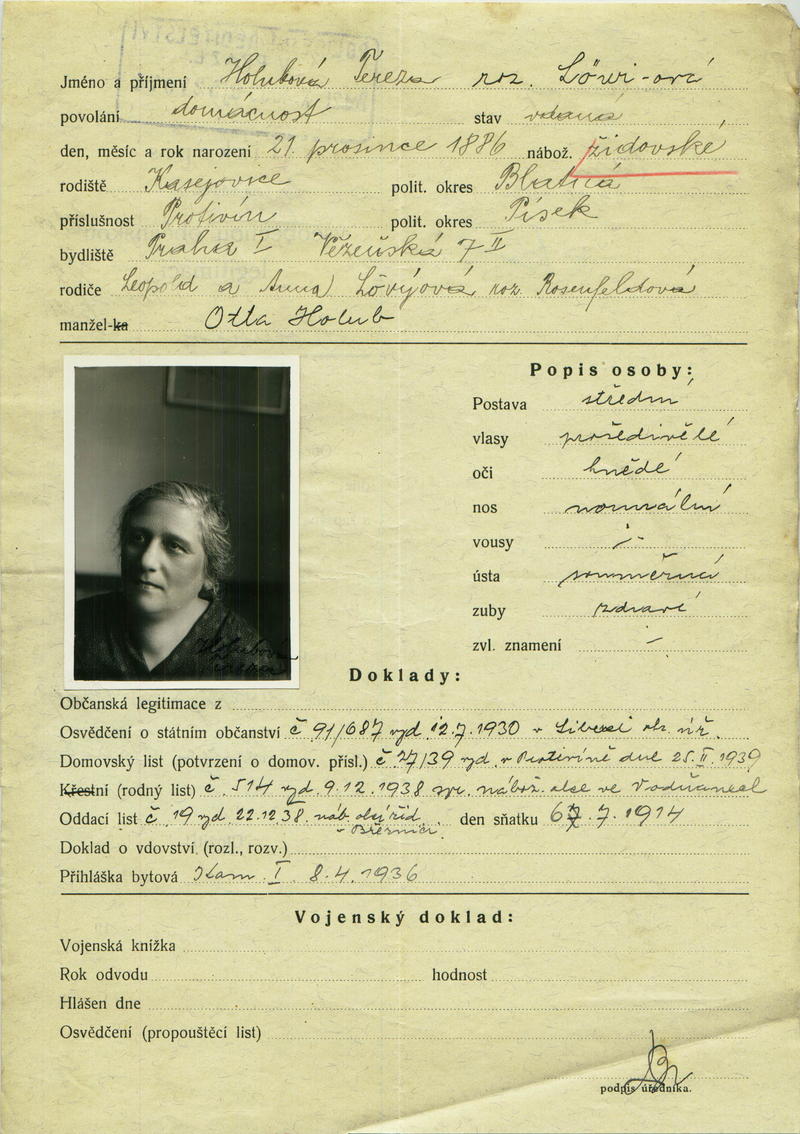 Jméno a příjmení Holubová Tereza roz. Löwi-ová
povolání domácnost stav vdaná
den, měsíc a rok narození 21. prosince 1886 nábož. židovské
rodiště Kasejovice polit. okres Blatná
příslušnost Protivín polit. okres Písek
bydliště Praha I Vězeňská 7 II
rodiče Leopold a Anna Lövyová roz. Rosenfeldová
manžel-ka Otta Holub
Popis osoby:
Postava střední
vlasy prošedivělé
oči hnědé
nos normální
vousy -
ústa souměrná
zuby zdravé
zvl. znamení -
Holubová
Doklady:
Občanská legitimace z
Osvědčení o státním občanství č 91/687 vyd 12.7.1930 v
Domovský list (potvrzení o domov. přísl.) č 27/39 vyd. v Protivíně dne 25.II.1939
Křestní (rodný list) č. 514 vyd. 9.12.1938 nábož. obce ve Vodňanech
Oddací list č. 19 vyd. 22.12.38. náb. v Březnici den sňatku 7.1914
Doklad o vdovství (rozl., rozv.)
Přihláška bytová Kom. I. 8.4.1936
Vojenský doklad:
Vojenská knížka
Rok odvodu hodnost
Hlášen dne
Osvědčení (propouštěcí list)
podpis úředníka.